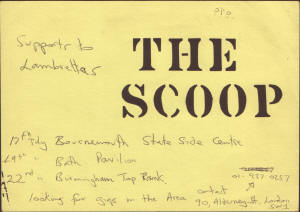 P.T.O.
Supports to
Lambrettas
THE
SCOOP
17th July Bournemouth State Side Centre
" Bath Pavilion
22nd " Birmingham Top Rank
looking for gigs in the Area
contact
01-937-0257
90, Alderney St. London
SW1